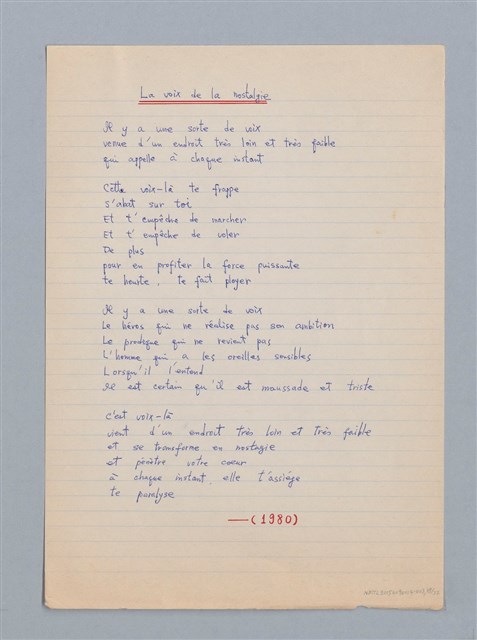 La voix de la nostalgie
Il y a une sorte de voix
venue d'un endroit très loin et très faible
qui appelle à chaque instant
Cette voix-là te frappe
s'abat sur toi
Et t'empêche de marcher
Et t'empêche de voler
De plus
pour en profiter la force puissante
te heurte, te fait ployer
Il y a une sorte de voix
Le héros qui ne réalise pas son ambition
Le prodigue qui ne revient pas
L'homme qui a les oreilles sensibles
Lorsqu'il l'entend
Il est certain qu'il est maussade et triste
C'est voix-là
vient d'un endroit très loin et très faible
et se transforme en nostagie
et pénètre votre coeur
à chaque instant, elle t'assiége
te paralyse
—(1980)